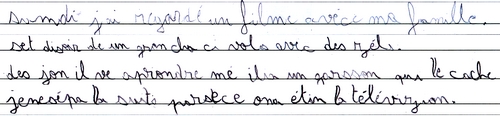 sumdi j'ai regardé un filme avèce ma famille.
set disoir de un grancha ci vola avec des zéls.
des jon il ve aprondre mé ilia un garsson qui le cache
jenesépa la suite parsèce ona étin la télévizyon.